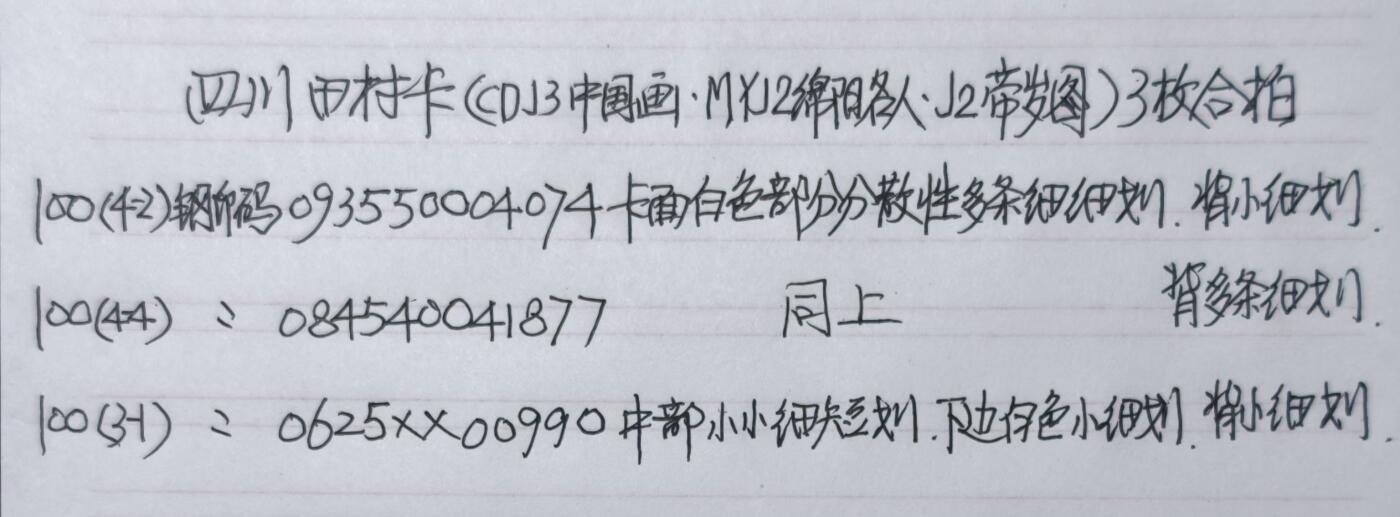 四川田村卡(CDJ3中国画·MYJ2绵阳名人·J2带岁图)3枚合拍
100(4-2)钢印码093550004074卡面白色部分分散性多条细细划.背小细划.
100(4-4) 〃 084540041877 同上 背多条细划.
100(3-1) 〃 0625××00990中部小小细短划.下边白色小细划.背小细划.